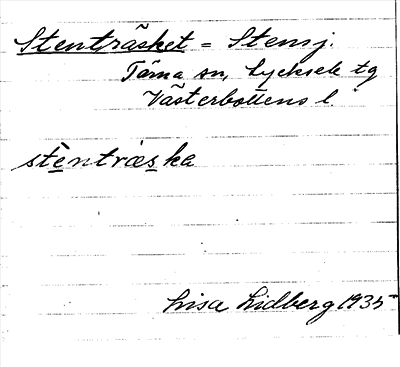 Stenträsket = Stensj.
Tärna sn, Lycksele tg
Västerbottens l.
stènträska
Lisa Lidberg 1935